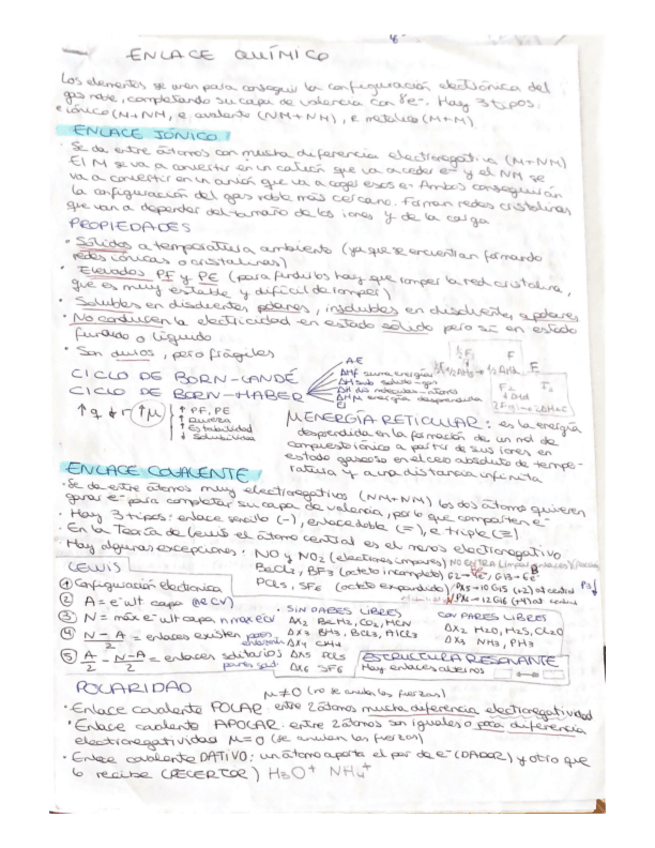 ENLACE QUÍMICO
Los elementos se unen para conseguir la configuración electrónica del
gas noble, completando su capa de valencia con 8e-. Hay 3 tipos:
e iónico (M+NM), e covalente (NM+NM), e metálico (M+M)
ENLACE IÓNICO
· Se da entre átomos con mucha diferencia electronegativa (M+NM)
El M se va a convertir en un catión que va a ceder e- y el NM se
va a convertir en un anión que va a coger esos e-. Ambos conseguirán
la configuración del gas noble más cercano. Forman redes cristalinas
que van a depender del tamaño de los iones y de la carga
PROPIEDADES
· Sólidos a temperatura ambiente (ya que se encuentran formando
redes iónicas o cristalinas)
· Elevados PF y PE (para fundirlos hay que romper la red cristalina,
que es muy estable y difícil de romper)
· Solubles en disolventes polares, insolubles en disolventes apolares
· No conducen la electricidad en estado sólido pero sí en estado
fundido o líquido
· Son duros, pero frágiles
CICLO DE BORN-LANDÉ
CICLO DE BORN-HABER
AE
ΔHf suma energías
ΔH sub sólido-gas
ΔH dis moléculas-átomos
ΔHμ energía desprendida
EI
½F₂ F F-
↑q ↓r ↑μ
↑ PF, PE
↑ Dureza
↑ Estabilidad
↓ Solubilidad
μ ENERGÍA RETICULAR: es la energía
desprendida en la formación de un mol de
compuesto iónico a partir de sus iones en
estado gaseoso en el cero absoluto de tempe-
ratura y a una distancia infinita
ENLACE COVALENTE
· Se da entre átomos muy electronegativos (NM+NM) los dos átomos quieren
ganar e- para completar su capa de valencia, por lo que comparten e-
· Hay 3 tipos: enlace sencillo (-), enlace doble (=), e triple (≡)
· En la Teoría de Lewis el átomo central es el menos electronegativo
· Hay algunas excepciones: NO y NO2 (electrones impares) NO ENTRA
BeCl2, BF3 (octeto incompleto) G2→4e-, G13→6e-
PCl5, SF6 (octeto expandido) PX5→10 G15 (+2) at central
PX6→12 G16 (+4) at central
P3↓
LEWIS
① Configuración electrónica
② A = e- ult capa (ne CV)
③ N = máx e- ult capa n max e CV
④ N-A/2 = enlaces existen pares enlazantes
⑤ A/2 - N-A/2 = enlaces solitarios pares sol.
· SIN PARES LIBRES
ΔX2 BeH2, CO2, HCN
ΔX3 BH3, BCl3, AlCl3
ΔX4 CH4
ΔX5 PCl5
ΔX6 SF6
CON PARES LIBRES
ΔX2 H2O, H2S, Cl2O
ΔX3 NH3, PH3
ESTRUCTURA RESONANTE
Hay enlaces alternos
POLARIDAD
μ≠0 (no se anulan las fuerzas)
· Enlace covalente POLAR: entre 2 átomos mucha diferencia electronegatividad
· Enlace covalente APOLAR: entre 2 átomos son iguales o poca diferencia
electronegatividad μ=0 (se anulan las fuerzas)
· Enlace covalente DATIVO: un átomo aporta el par de e- (DADOR) y otro que
lo recibe (RECEPTOR) H3O+ NH4+